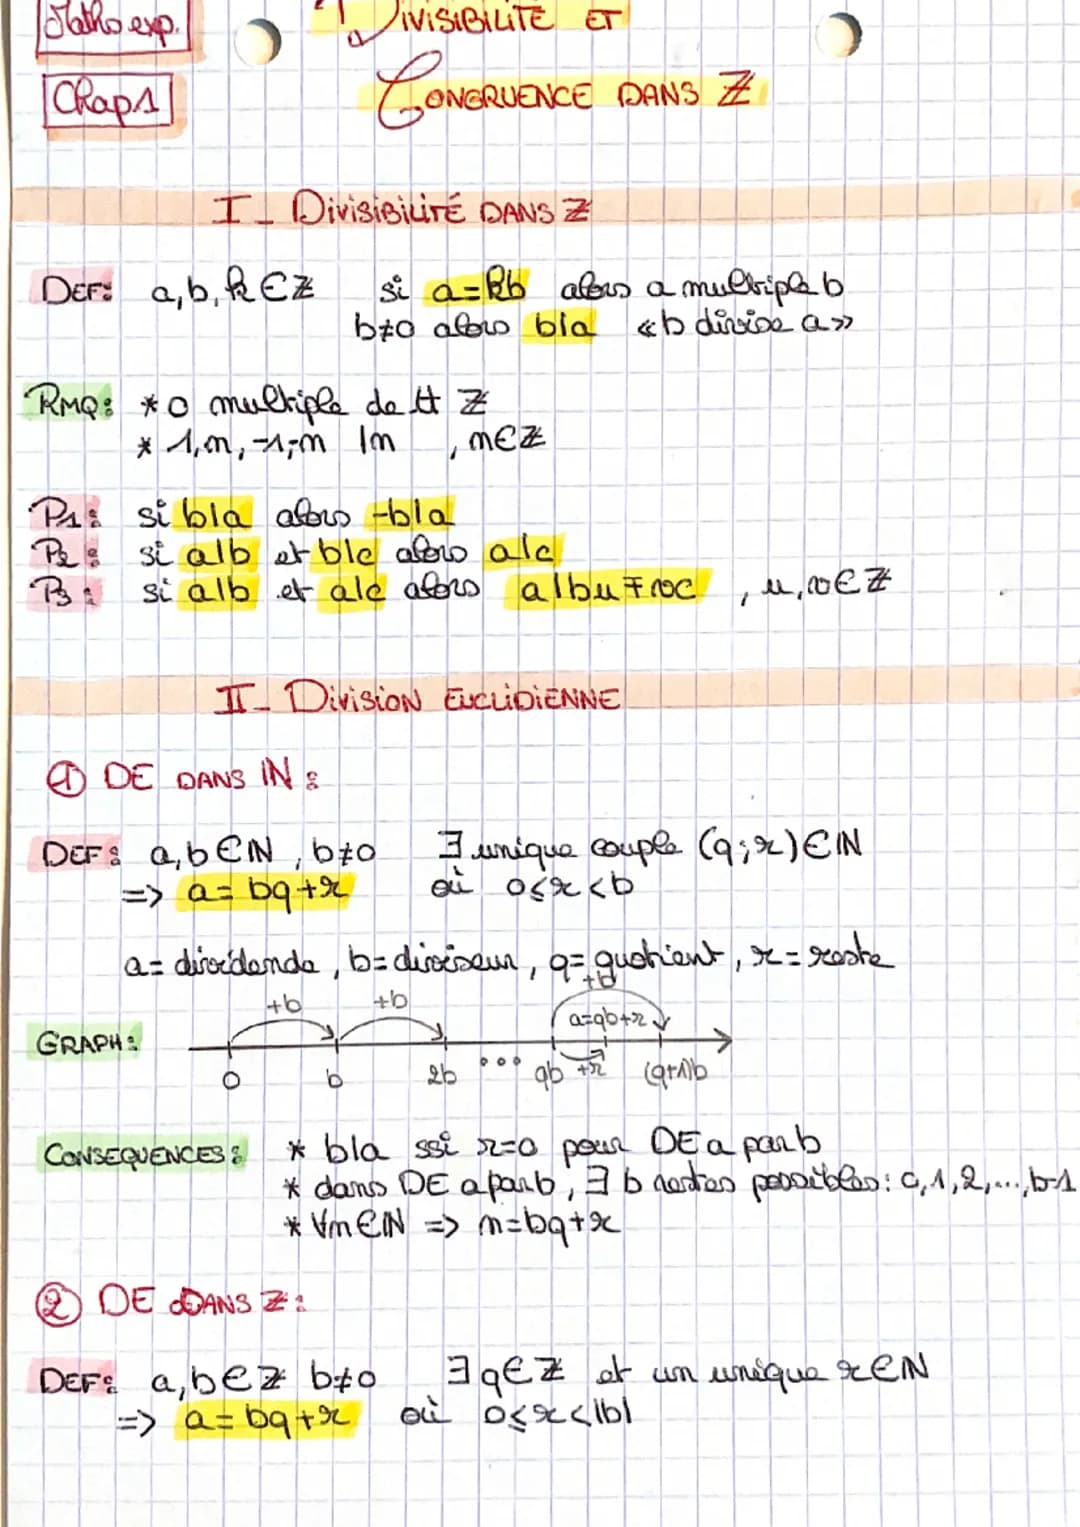 Maths exp.
DIVISIBILITÉ ET
Chap1
CONGRUENCE DANS ℤ
I - DIVISIBILITÉ DANS ℤ
DEF: a,b,k∈ℤ si a=kb alors a multiple b
b≠0 alors b|a «b divise a»
RMQ: * 0 multiple de tt ℤ
* 1,n,-1,-n |n , n∈ℤ
P1: si b|a alors -b|a
P2: si a|b et b|c alors a|c
P3: si a|b et a|c alors a|bu∓vc , u,v∈ℤ
II - DIVISION EUCLIDIENNE
① DE DANS ℕ :
DEF: a,b∈ℕ, b≠0 ∃ unique couple (q;r)∈ℕ
=> a=bq+r où 0≤r<b
a= dividende, b= diviseur, q= quotient, r= reste
+b +b +b
a=qb+r
GRAPH:
0 b 2b ... qb +r (q+1)b
CONSEQUENCES: * b|a ssi r=0 pour DE a par b
* dans DE a par b, ∃ b restes possibles: 0,1,2,...,b-1
* ∀n∈ℕ => n=bq+r
② DE DANS ℤ:
DEF: a,b∈ℤ b≠0 ∃q∈ℤ et un unique r∈ℕ
=> a=bq+r où 0≤r<|b|